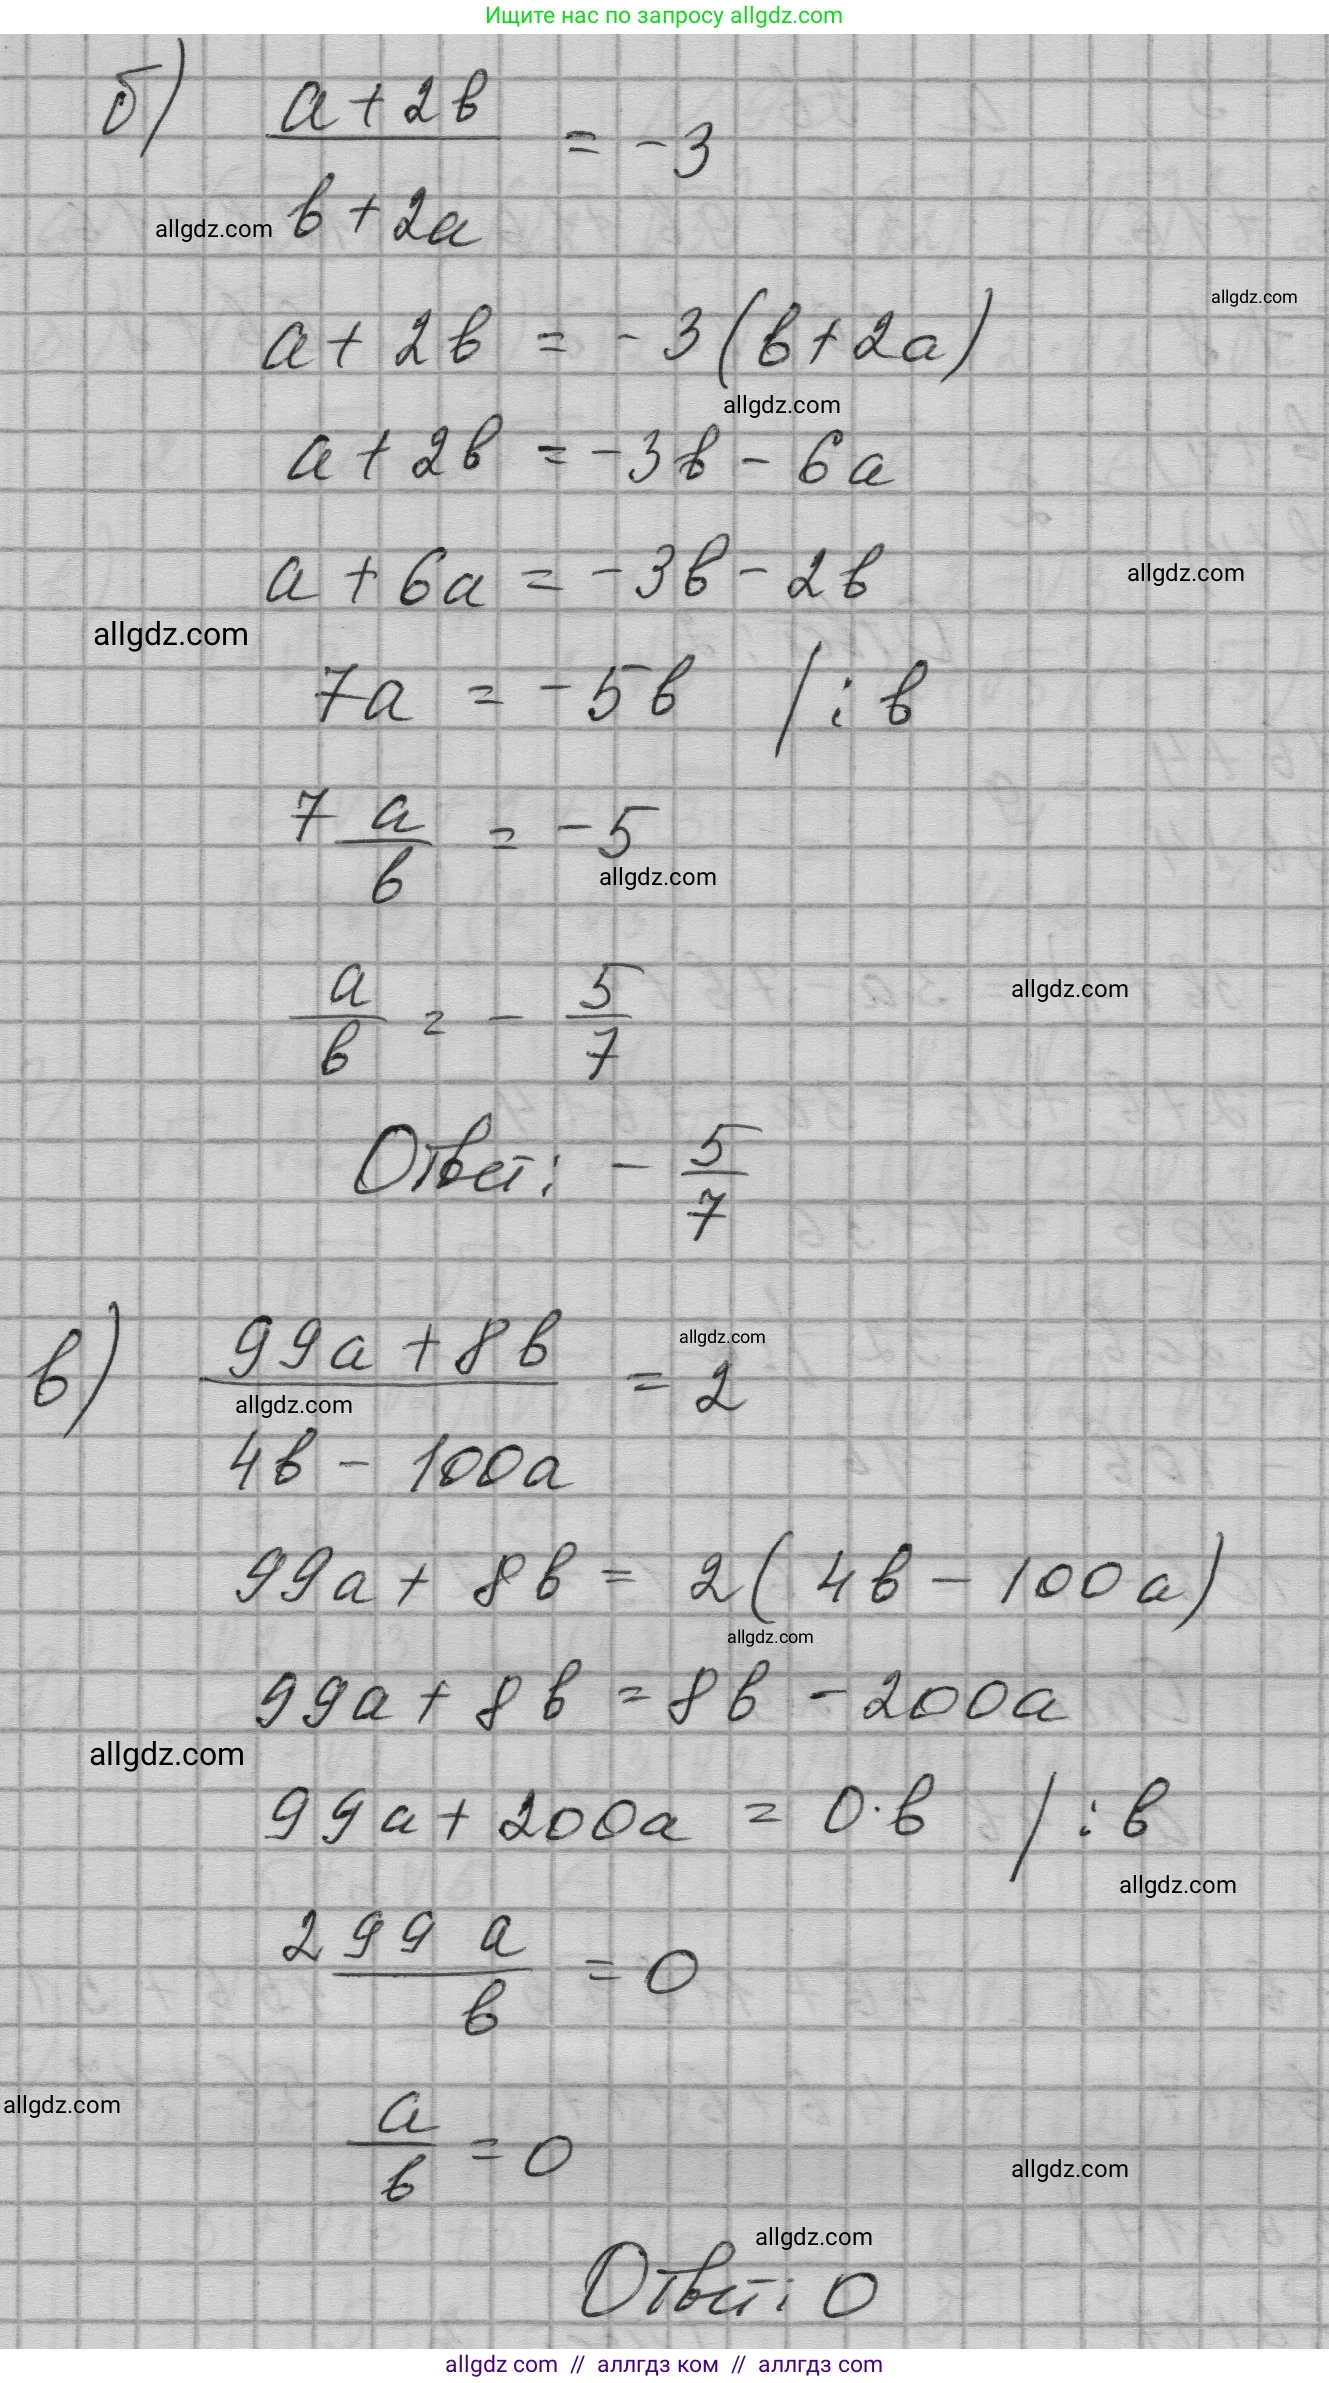 Ищите нас по запросу allgdz.com
б) (a + 2b) / (b + 2a) = -3
allgdz.com
allgdz.com
a + 2b = -3(b + 2a)
allgdz.com
a + 2b = -3b - 6a
a + 6a = -3b - 2b
allgdz.com
allgdz.com
7a = -5b / : b
7 a/b = -5
allgdz.com
a/b = - 5/7
allgdz.com
Ответ: - 5/7
в) (99a + 8b) / (4b - 100a) = 2
allgdz.com
allgdz.com
99a + 8b = 2(4b - 100a)
allgdz.com
99a + 8b = 8b - 200a
allgdz.com
99a + 200a = 0·b / : b
allgdz.com
299a/b = 0
allgdz.com
a/b = 0
allgdz.com
allgdz.com
Ответ: 0
allgdz com // аллгдз ком // аллгдз com